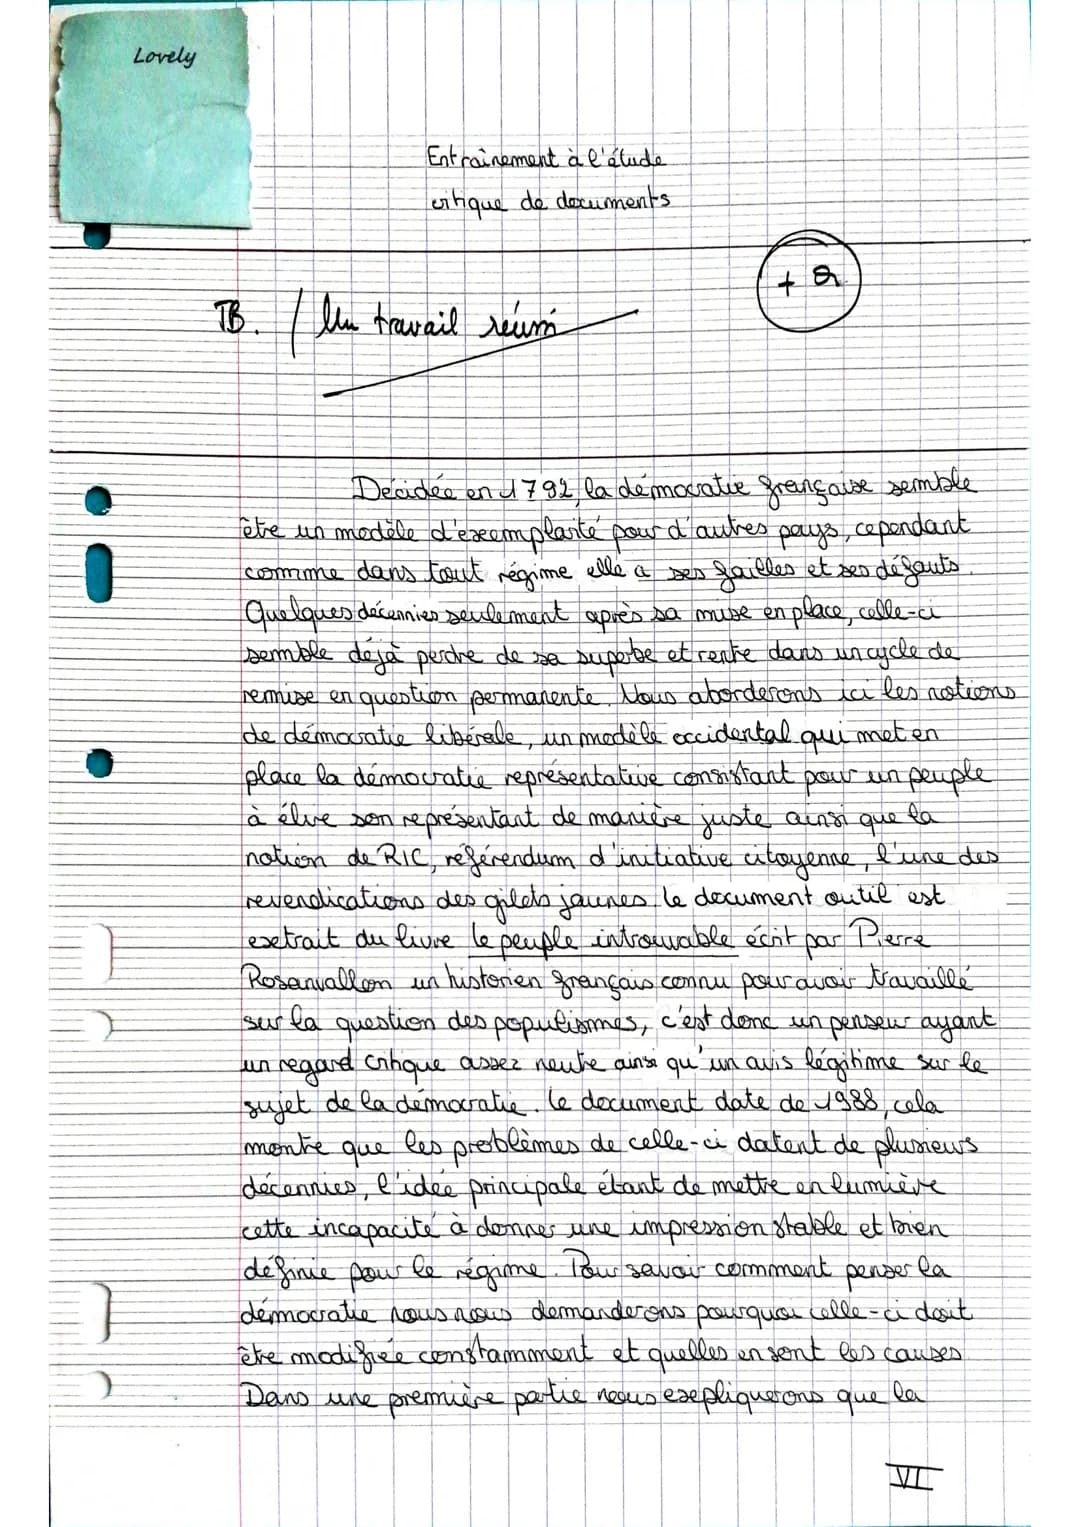 Lovely
Entraînement à l'étude
critique de documents
+ 2
TB. / Un travail réussi
Décidée en 1792, la démocratie française semble
être un modèle d'exemplarité pour d'autres pays, cependant
comme dans tout régime elle a ses failles et ses défauts.
Quelques décennies seulement après sa mise en place, celle-ci
semble déjà perdre de sa superbe et rentre dans un cycle de
remise en question permanente. Nous aborderons ici les notions
de démocratie libérale, un modèle occidental qui met en
place la démocratie représentative consistant pour un peuple
à élire son représentant de manière juste ainsi que la
notion de RIC, référendum d'initiative citoyenne, l'une des
revendications des gilets jaunes. Le document outil est
extrait du livre Le peuple introuvable écrit par Pierre
Rosanvallon un historien français connu pour avoir travaillé
sur la question des populismes, c'est donc un penseur ayant
un regard critique assez neutre ainsi qu'un avis légitime sur le
sujet de la démocratie. Le document date de 1988, cela
montre que les problèmes de celle-ci datent de plusieurs
décennies, l'idée principale étant de mettre en lumière
cette incapacité à donner une impression stable et bien
définie pour le régime. Pour savoir comment penser la
démocratie nous nous demanderons pourquoi celle-ci doit
être modifiée constamment et quelles en sont les causes.
Dans une première partie nous expliquerons que la
VI